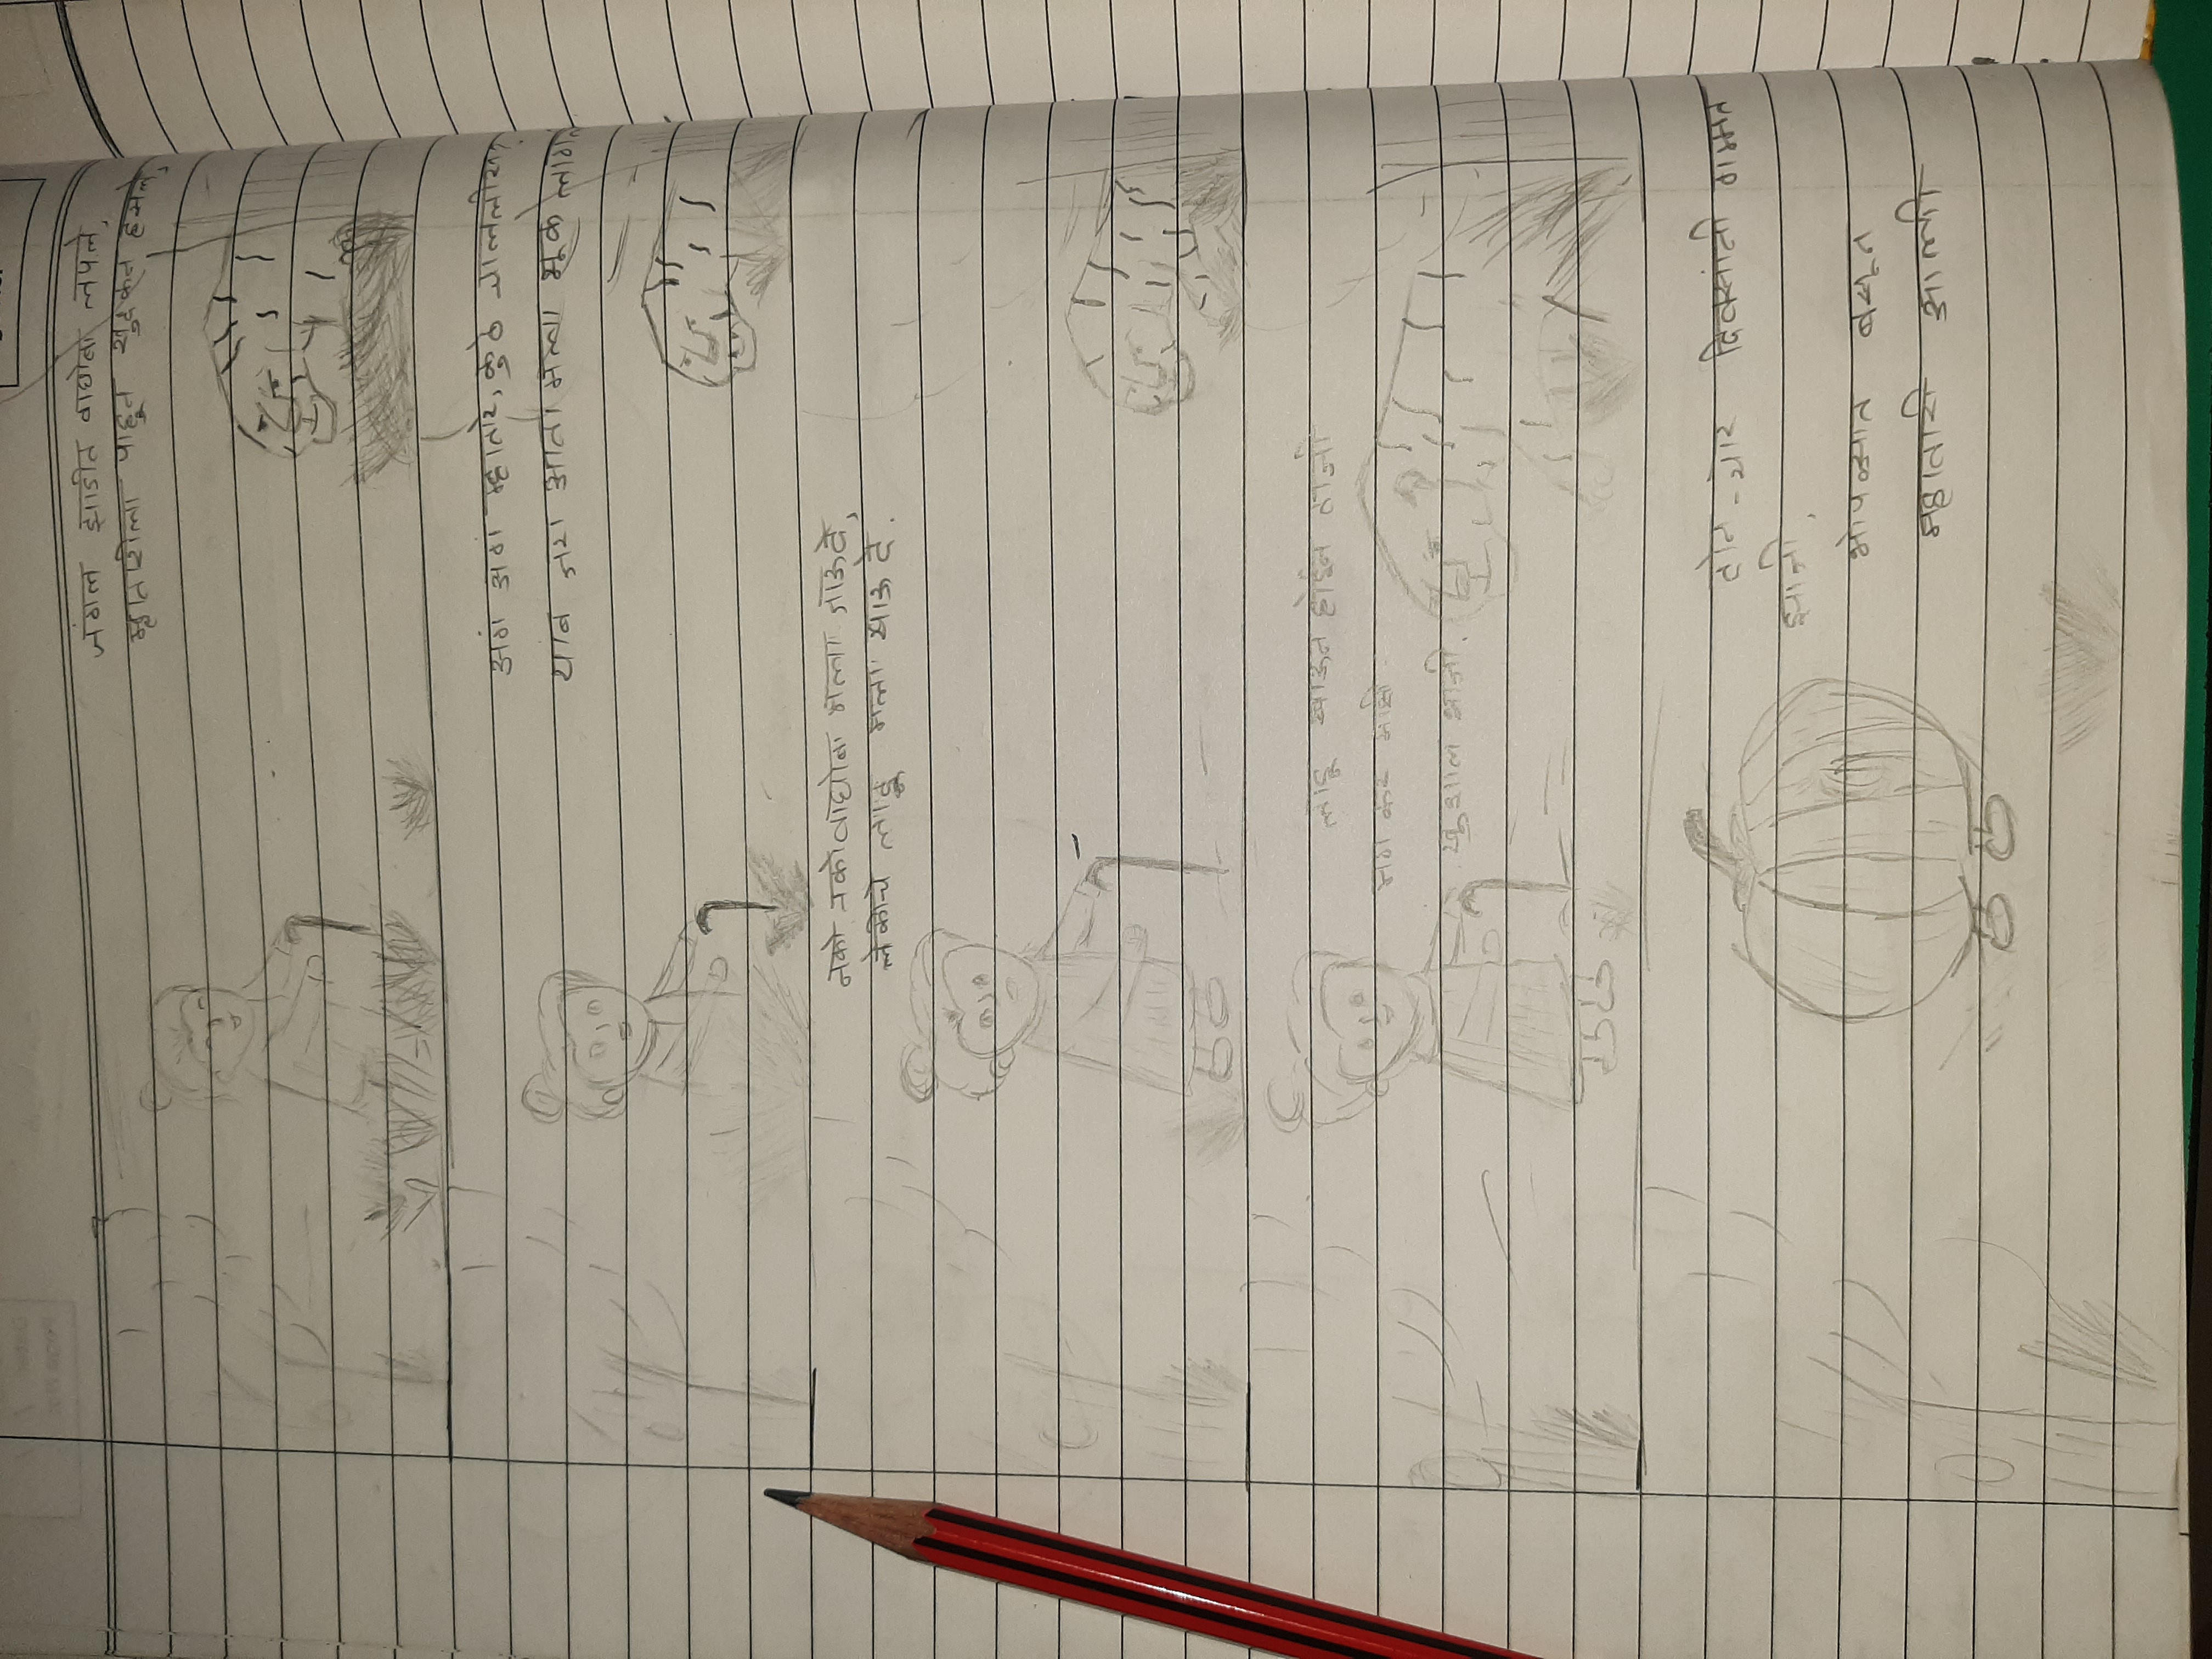 जंगल झाडीत वाघोबा लपले,
म्हातारीला पाहून खुदकन हसले,
अगं अगं म्हातारे, कुठे चाललीस?
थांब जरा आता मला भूक लागली
नको नको वाघोबा मला जाऊ दे,
लेकीचे लाडू मला खाऊ दे.
लाडू खाऊन होईन ताजी
मग कर माझी
खुशाल भाजी.
दोन-चार दिवसांनी गम्मत
झाली,
भोपळ्यात बसून
म्हातारी आली